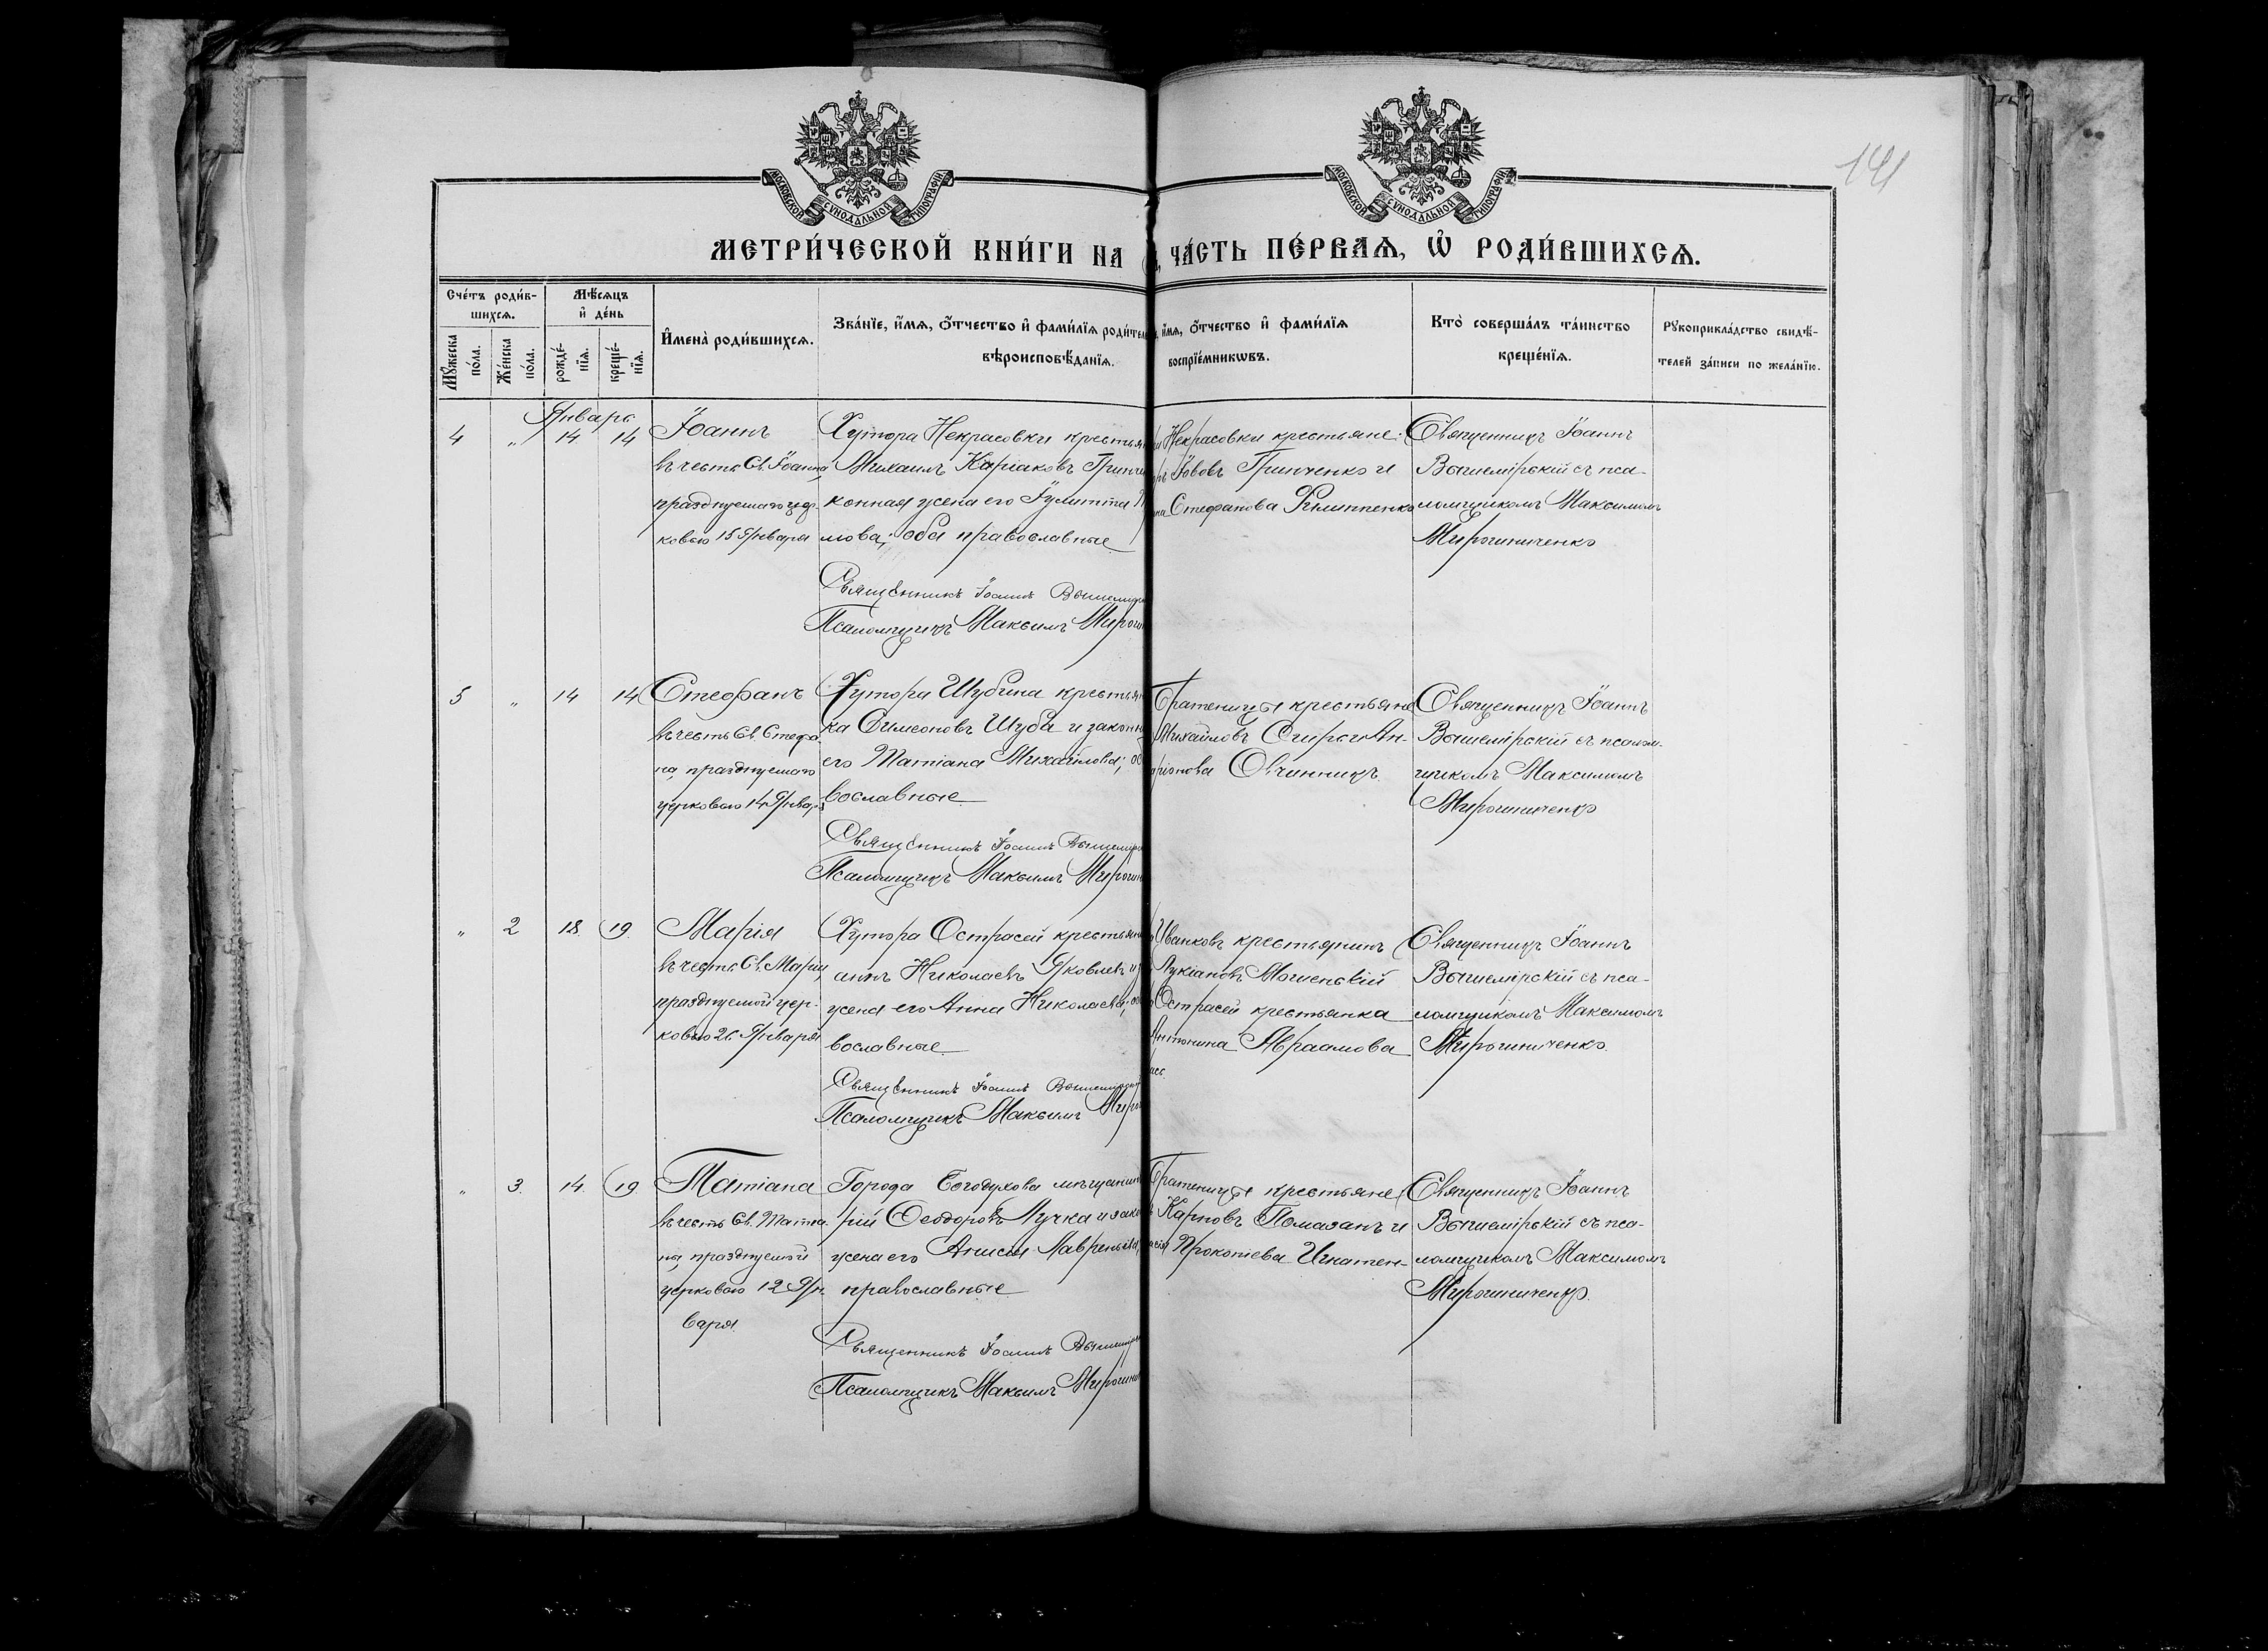 141
МОСКОВСКОЙ СУНОДАЛЬНОЙ ТИПОГРАФІИ
МОСКОВСКОЙ СУНОДАЛЬНОЙ ТИПОГРАФІИ
МЕТРИ́ЧЕСКОЙ КНИ́ГИ НА ЧА́СТЬ ПЕ́РВАѦ, Ѡ РОДИ́ВШИХСѦ.
Сче́тъ роди́в-
шихсѧ.
Мꙋжеска по́ла.
Же́нска по́ла.
Мѣ́сѧцъ
и де́нь
рожде́-
нїѧ.
креще́-
нїѧ.
Имена̀ роди́вшихсѧ.
Зва́нїе, и́мѧ, ѻ́тчество и фами́лїѧ роди́тел
вѣроисповѣ́данїѧ.
и́мѧ, ѻ́тчество и фами́лїѧ
воспрїе́мникѡвъ.
Кто̀ соверша́лъ та́инство
креще́нїѧ.
Рꙋкоприкла́дство свидѣ́-
телей за́писи по жела́нїю.
Январь
4 „ 14 14
Іоаннъ
въ честь Св. Іоанна,
празднуемаго цер-
ковью 15 Января
Хутора Некрасовки крестьян
Михаилъ Киріаковъ Гринч
конная жена его Іулитта
мова; оба православные
Священникъ Іоаннъ Вышемір
Псаломщикъ Максимъ Мирош
Некрасовки крестьяне:
Іововъ Гринченко и
Стефанова Филиппенко
Священникъ Іоаннъ
Вышемірскій съ пса-
ломщикомъ Максимомъ
Мирошниченко
5 „ 14 14
Стефанъ
въ честь Св. Стефа-
на, празднуемаго
церковью 14 Января
Хутора Шубина крестьян
ка Симеоновъ Шуба и законн
его Татіана Михайлова; об
вославные
Священникъ Іоаннъ Вышемір
Псаломщикъ Максимъ Мирошн
Братеницы крестьяне
Михайловъ Сигри Ан-
аріонова Овчинникъ
Священникъ Іоаннъ
Вышемірскій съ псалом-
щикомъ Максимомъ
Мирошниченко
„ 2 18 19
Марія
въ честь Св. Маріи,
празднуемой цер-
ковью 26 Января
Хутора Острасей крестьян
аннъ Николаевъ Яковлевъ и
жена его Анна Николаева; об
вославные
Священникъ Іоаннъ Вышемірскій
Псаломщикъ Максимъ Миро
Иванковъ крестьянинъ
Лукіановъ Мошенскій
Острасей крестьянка
Антонина Авраамова
Священникъ Іоаннъ
Вышемірскій съ пса-
ломщикомъ Максимомъ
Мирошниченко
„ 3 14 19
Татіана
въ честь Св. Татіа-
ны, празднуемой
церковью 12 Ян-
варя
Города Богодухова мѣщанин
рій Ѳеодоровъ Лучка и зако
жена его Анисія Лаврентьева,
православные
Священникъ Іоаннъ Вышемір
Псаломщикъ Максимъ Мирошни
Братеницы крестьяне
Карповъ Помазанъ и
Прокопіева Игнатен-
Священникъ Іоаннъ
Вышемірскій съ пса-
ломщикомъ Максимомъ
Мирошниченко